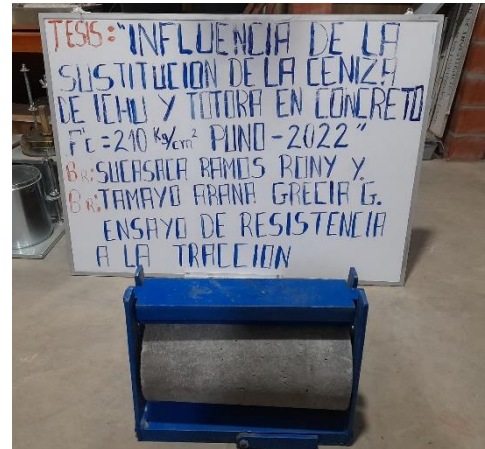 TESIS: "INFLUENCIA DE LA
SUSTITUCION DE LA CENIZA
DE ICHU Y TOTORA EN CONCRETO
F'C = 210 Kg/cm² PUNO - 2022"
BR: SUCASACA RAMOS RONY Y.
BR: TAMAYO ARANA GRECIA G.
ENSAYO DE RESISTENCIA
A LA TRACCION